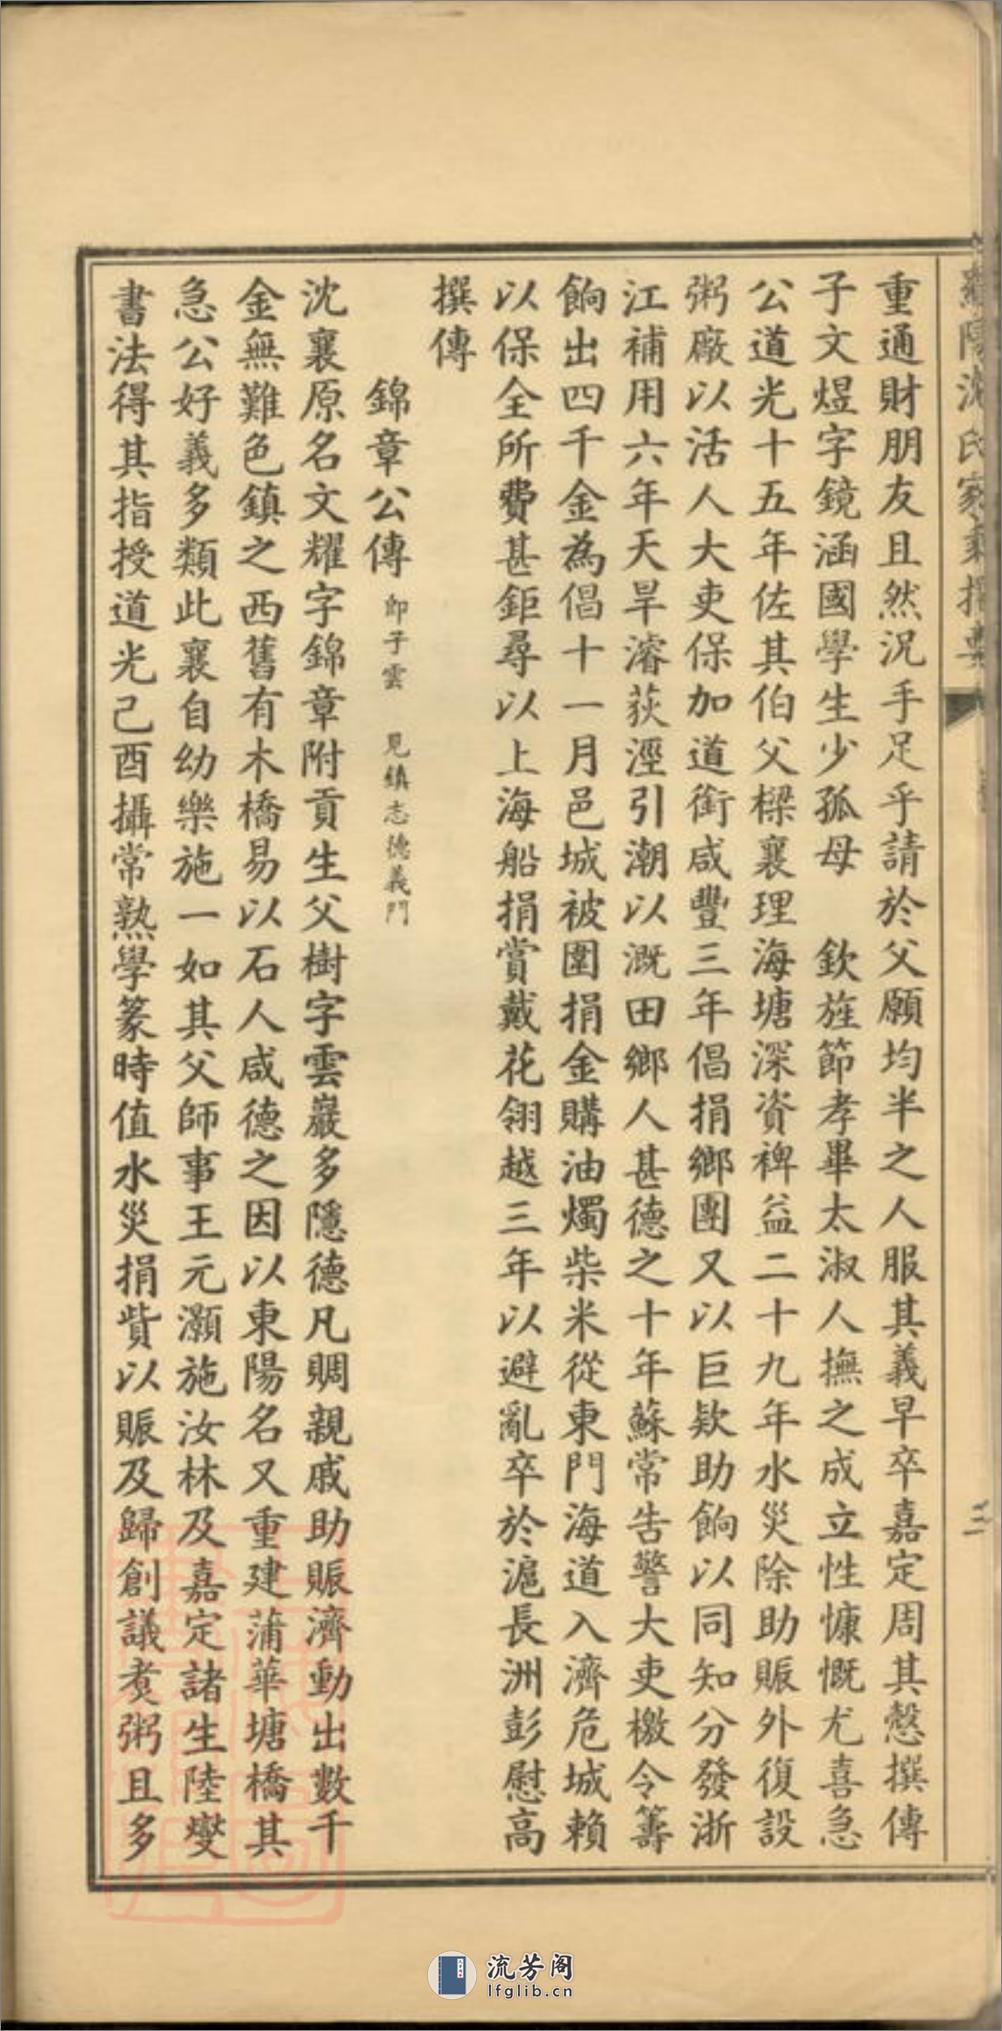 沈氏家乘
三
重通財朋友且然況手足乎請於父願均半之人服其義早卒嘉定周其慤撰傳
子文煜字鏡涵國學生少孤母 欽旌節孝畢太淑人撫之成立性慷慨尤喜急
公道光十五年佐其伯父樑襄理海塘深資裨益二十九年水災除助賑外復設
粥廠以活人大吏保加道銜咸豐三年倡捐鄉團又以巨欵助餉以同知分發浙
江補用六年天旱濬荻涇引潮以溉田鄉人甚德之十年蘇常告警大吏檄令籌
餉出四千金為倡十一月邑城被圍捐金購油燭柴米從東門海道入濟危城賴
以保全所費甚鉅尋以上海船捐賞戴花翎越三年以避亂卒於滬長洲彭慰高
撰傳
錦章公傳 卽子雲 見鎮志德義門
沈襄原名文耀字錦章附貢生父樹字雲巖多隱德凡賙親戚助賑濟動出數千
金無難色鎮之西舊有木橋易以石人咸德之因以東陽名又重建蒲華塘橋其
急公好義多類此襄自幼樂施一如其父師事王元灝施汝林及嘉定諸生陸燮
書法得其指授道光己酉攝常熟學篆時值水災捐貲以賑及歸創議煑粥且多
流芳阁
lfglib.cn